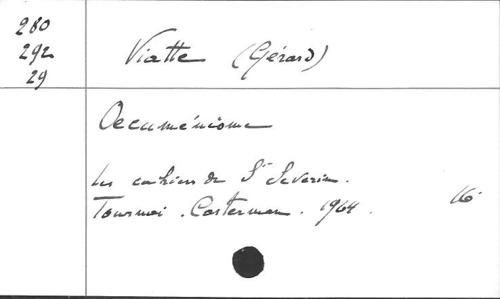 280
292
29
Viatte (Gérard)
Oecuménisme
Les cahiers de St Severin.
Tournai. Casterman. 1964. 16°